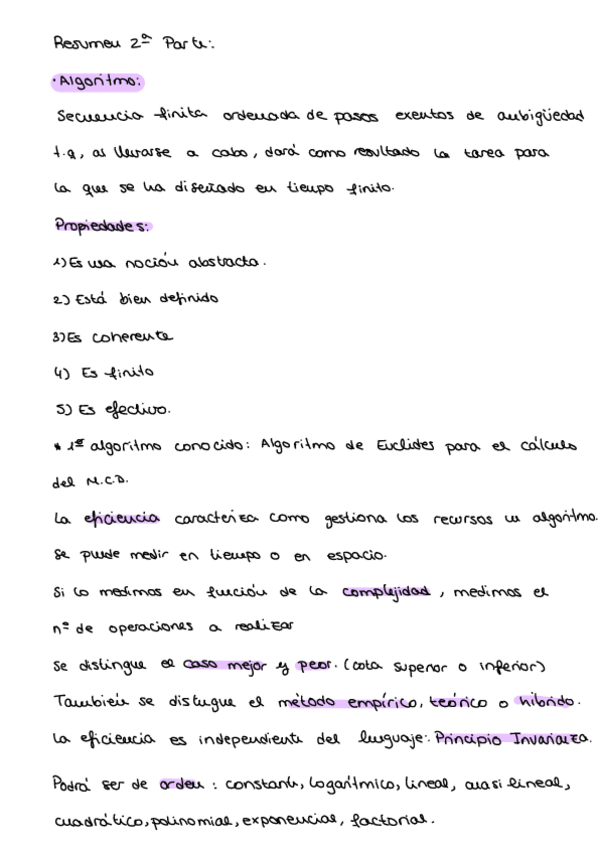 Resumen 2ª Parte:
· Algoritmo:
Secuencia finita ordenada de pasos exentos de ambigüedad
t.q, al llevarse a cabo, dará como resultado la tarea para
la que se ha diseñado en tiempo finito.
Propiedades:
1) Es una noción abstracta.
2) Está bien definido
3) Es coherente
4) Es finito
5) Es efectivo.
* 1er algoritmo conocido: Algoritmo de Euclides para el cálculo
del M.C.D.
La eficiencia caracteriza como gestiona los recursos un algoritmo.
Se puede medir en tiempo o en espacio.
Si lo medimos en función de la complejidad, medimos el
nº de operaciones a realizar
Se distingue el caso mejor y peor. (cota superior o inferior)
También se distingue el método empírico, teórico o híbrido.
La eficiencia es independiente del lenguaje: Principio Invarianza.
Podrá ser de orden: constante, logarítmico, lineal, cuasi lineal,
cuadrático, polinomial, exponencial, factorial.